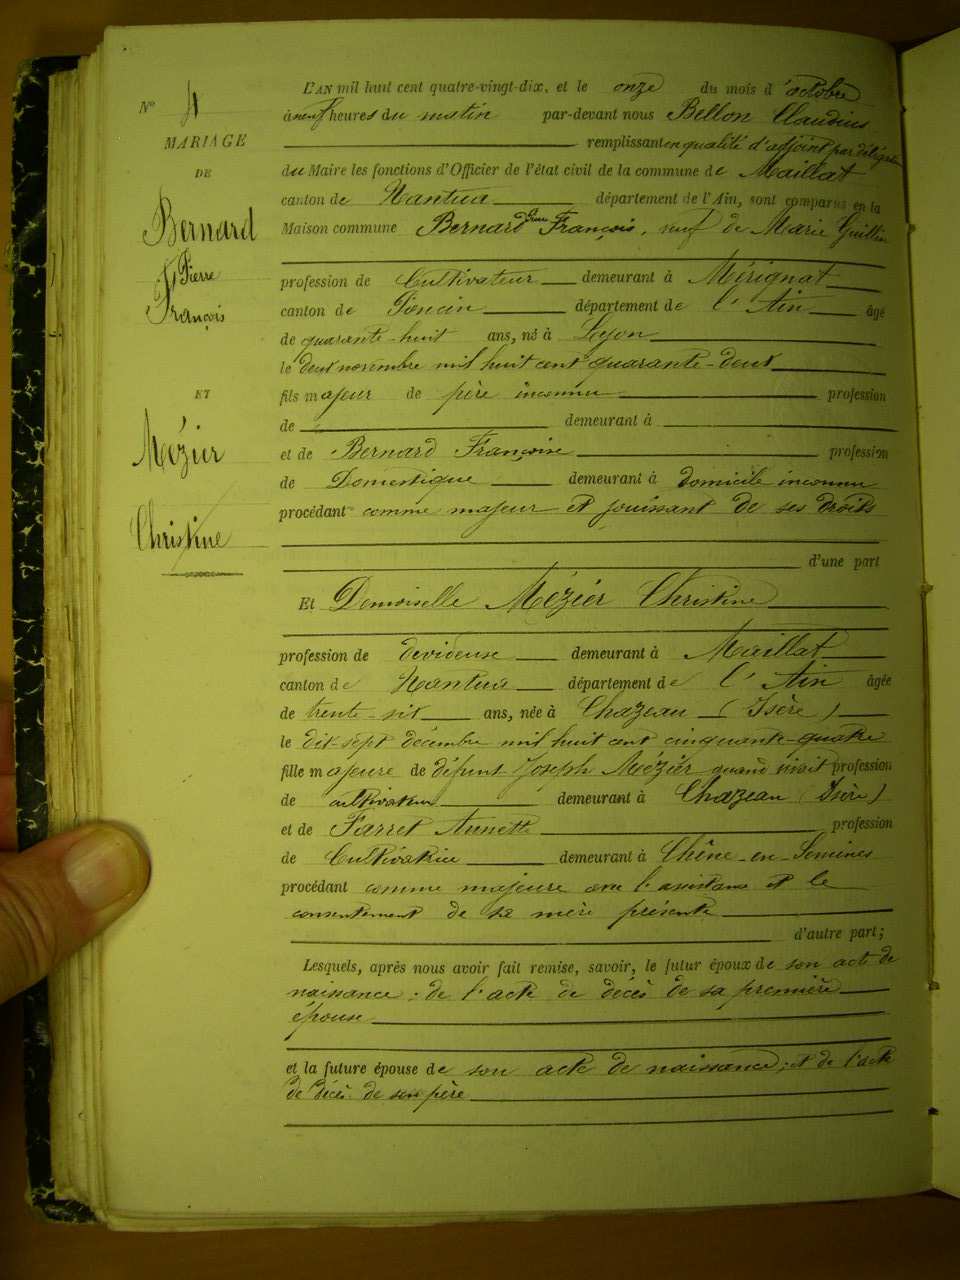 N° 4
MARIAGE
DE
Bernard
Pierre
François
ET
Mézier
Christine
L'AN mil huit cent quatre-vingt-dix, et le onze du mois d'octobre
à neuf heures du matin par-devant nous Bellon Claudius
remplissant en qualité d'adjoint par délégation
du Maire les fonctions d'Officier de l'état civil de la commune de Maillat
canton de Nantua département de l'Ain, sont comparus en la
Maison commune Bernard Pierre François, veuf de Marie Guillin
profession de Cultivateur demeurant à Mérignat
canton de Poncin département de l'Ain âgé
de quarante-huit ans, né à Leyon
le deux novembre mil huit cent quarante-deux
fils majeur de père inconnu profession
de demeurant à
et de Bernard Françoise profession
de Domestique demeurant à domicile inconnu
procédant comme majeur et jouissant de ses droits
d'une part
Et Demoiselle Mézier Christine
profession de devideuse demeurant à Maillat
canton de Nantua département de l'Ain âgée
de trente-six ans, née à Chazeau (Isère)
le dix-sept décembre mil huit cent cinquante-quatre
fille majeure de défunt Joseph Mézier quand vivait profession
de cultivateur demeurant à Chazeau (Isère)
et de Farret Annette profession
de Cultivatrice demeurant à Chêne-en-Semines
procédant comme majeure avec l'assistance et le
consentement de sa mère présente
d'autre part;
Lesquels, après nous avoir fait remise, savoir, le futur époux de son acte de
naissance; de l'acte de décès de sa première
épouse
et la future épouse de son acte de naissance; et de l'acte
de décès de son père